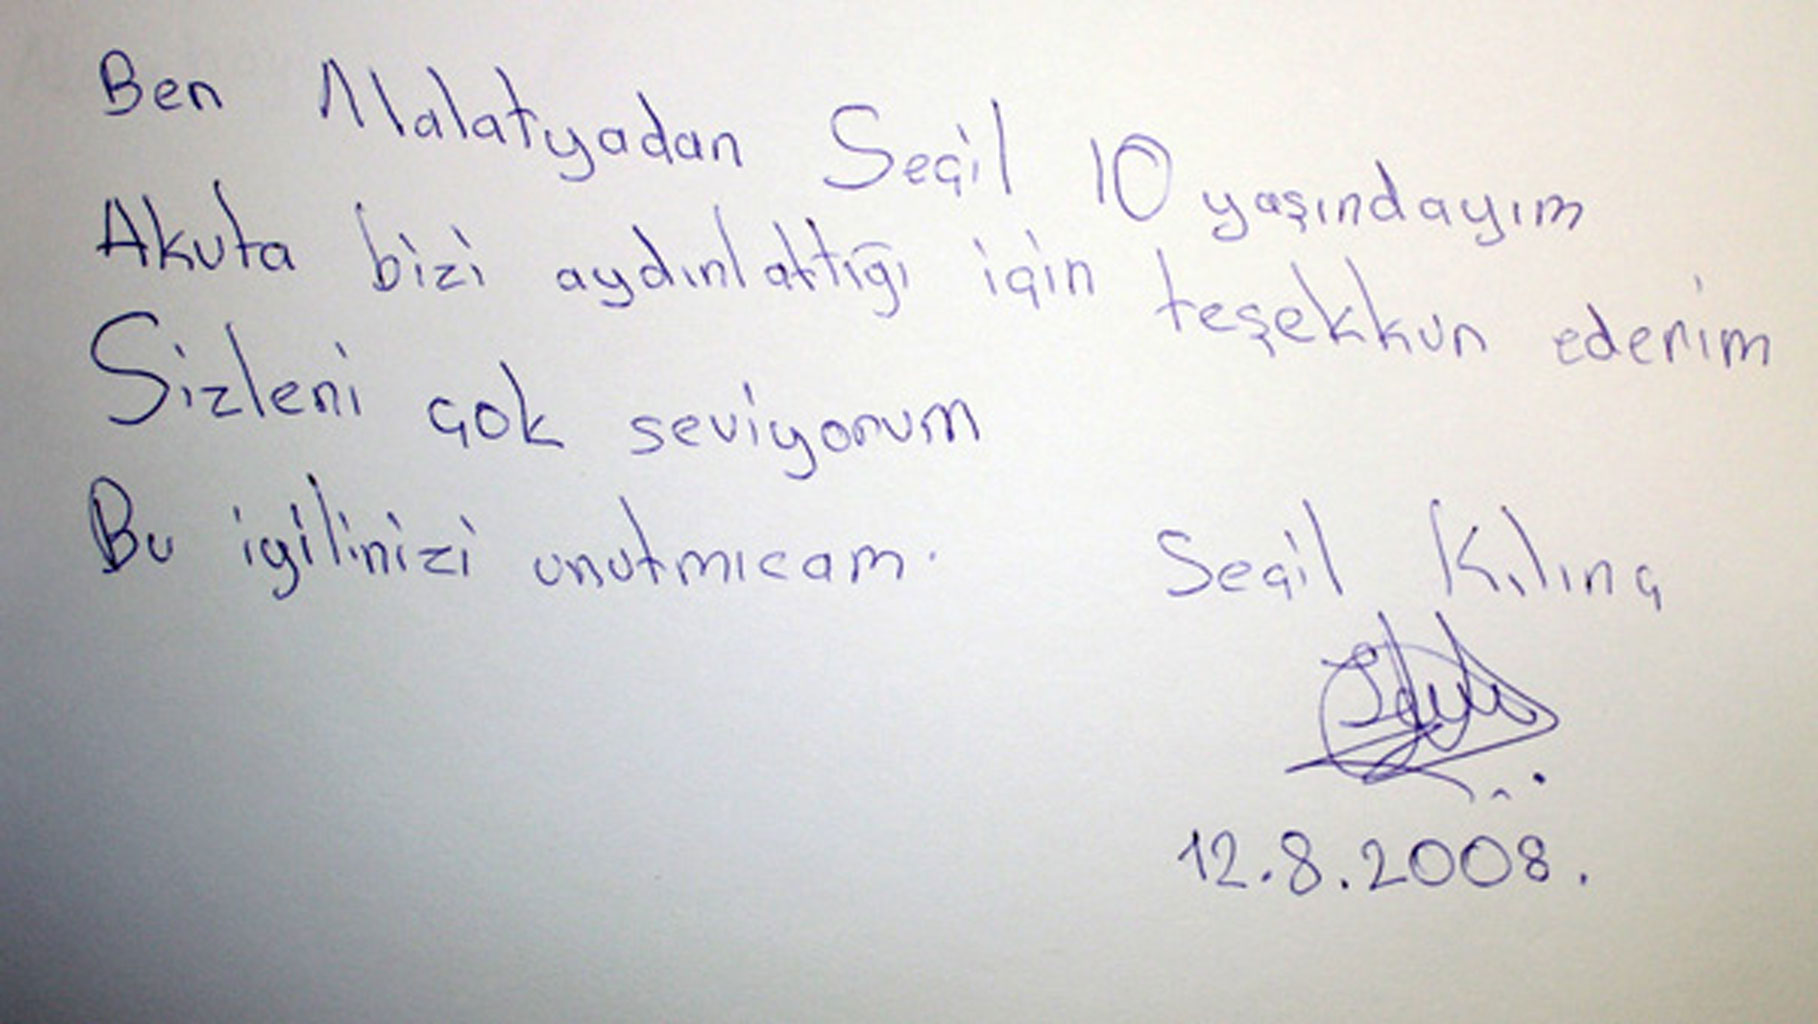 Ben Malatyadan Seçil 10 yaşındayım
Akuta bizi aydınlattığı için teşekkur ederim
Sizleri çok seviyorum
Bu igilinizi unutmıcam.
Seçil Kılınç
12.8.2008.